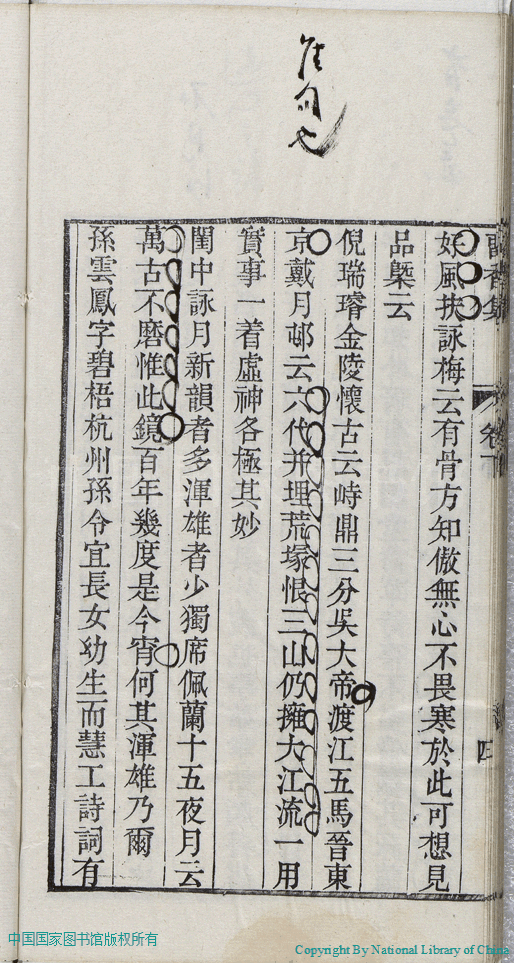 佳句也
好風扶詠梅云有骨方知傲無心不畏寒於此可想見
品槩云
倪瑞璿金陵懷古云峙鼎三分吳大帝渡江五馬晉東
京戴月邨云六代并埋荒塚恨三山仍擁大江流一用
實事一着虛神各極其妙
閨中詠月新韻者多渾雄者少獨席佩蘭十五夜月云
萬古不磨惟此鏡百年幾度是今宵何其渾雄乃爾
孫雲鳳字碧梧杭州孫令宜長女幼生而慧工詩詞有
卷下
四
中国国家图书馆版权所有
Copyright By National Library of China